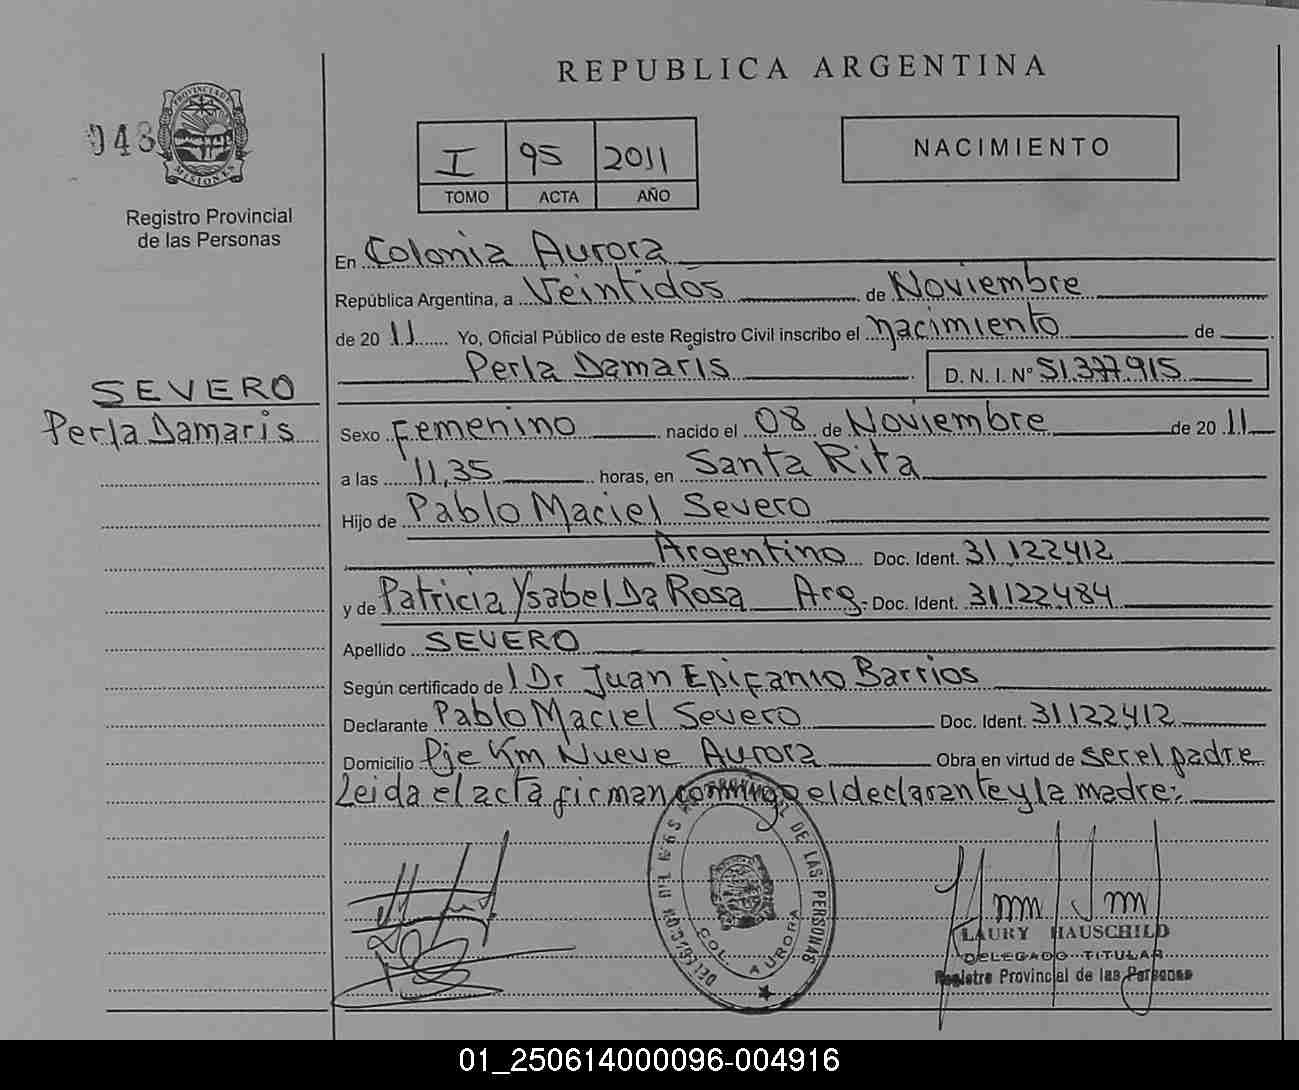 REPUBLICA ARGENTINA
048
PROVINCIA DE
MISIONES
Registro Provincial
de las Personas
I 95 2011
TOMO ACTA AÑO
NACIMIENTO
En Colonia Aurora
República Argentina, a Veintidós de Noviembre
de 2011 Yo, Oficial Público de este Registro Civil inscribo el nacimiento de
Perla Damaris D. N. I. N° 51.377.915
SEVERO
Perla Damaris
Sexo Femenino nacido el 08 de Noviembre de 2011
a las 11,35 horas, en Santa Rita
Hijo de Pablo Maciel Severo
Argentino Doc. Ident. 31.122412
y de Patricia Ysabel Da Rosa Arg. Doc. Ident. 31122484
Apellido SEVERO
Según certificado de Dr Juan Epifanio Barrios
Declarante Pablo Maciel Severo Doc. Ident. 31122412
Domicilio Pje Km Nueve Aurora Obra en virtud de ser el padre
Leida el acta firman conmigo el declarante y la madre:
DE LAS PERSONAS
COL. AURORA
LAURY HAUSCHILD
DELEGADO TITULAR
Registro Provincial de las Personas
01_250614000096-004916